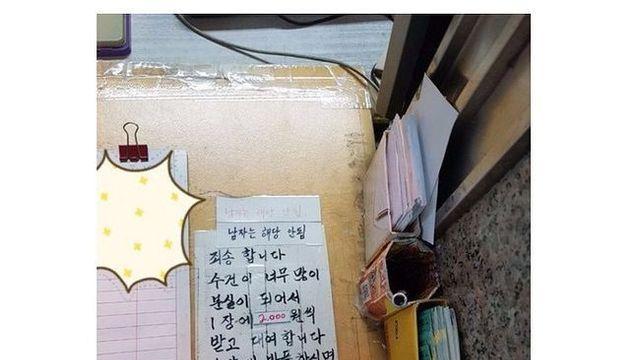 남자는 해당 안됨
남자는 해당 안됨
죄송 합니다
수건이 너무 많이
분실이 되어서
1장에 2,000 원씩
받고 대여 합니다